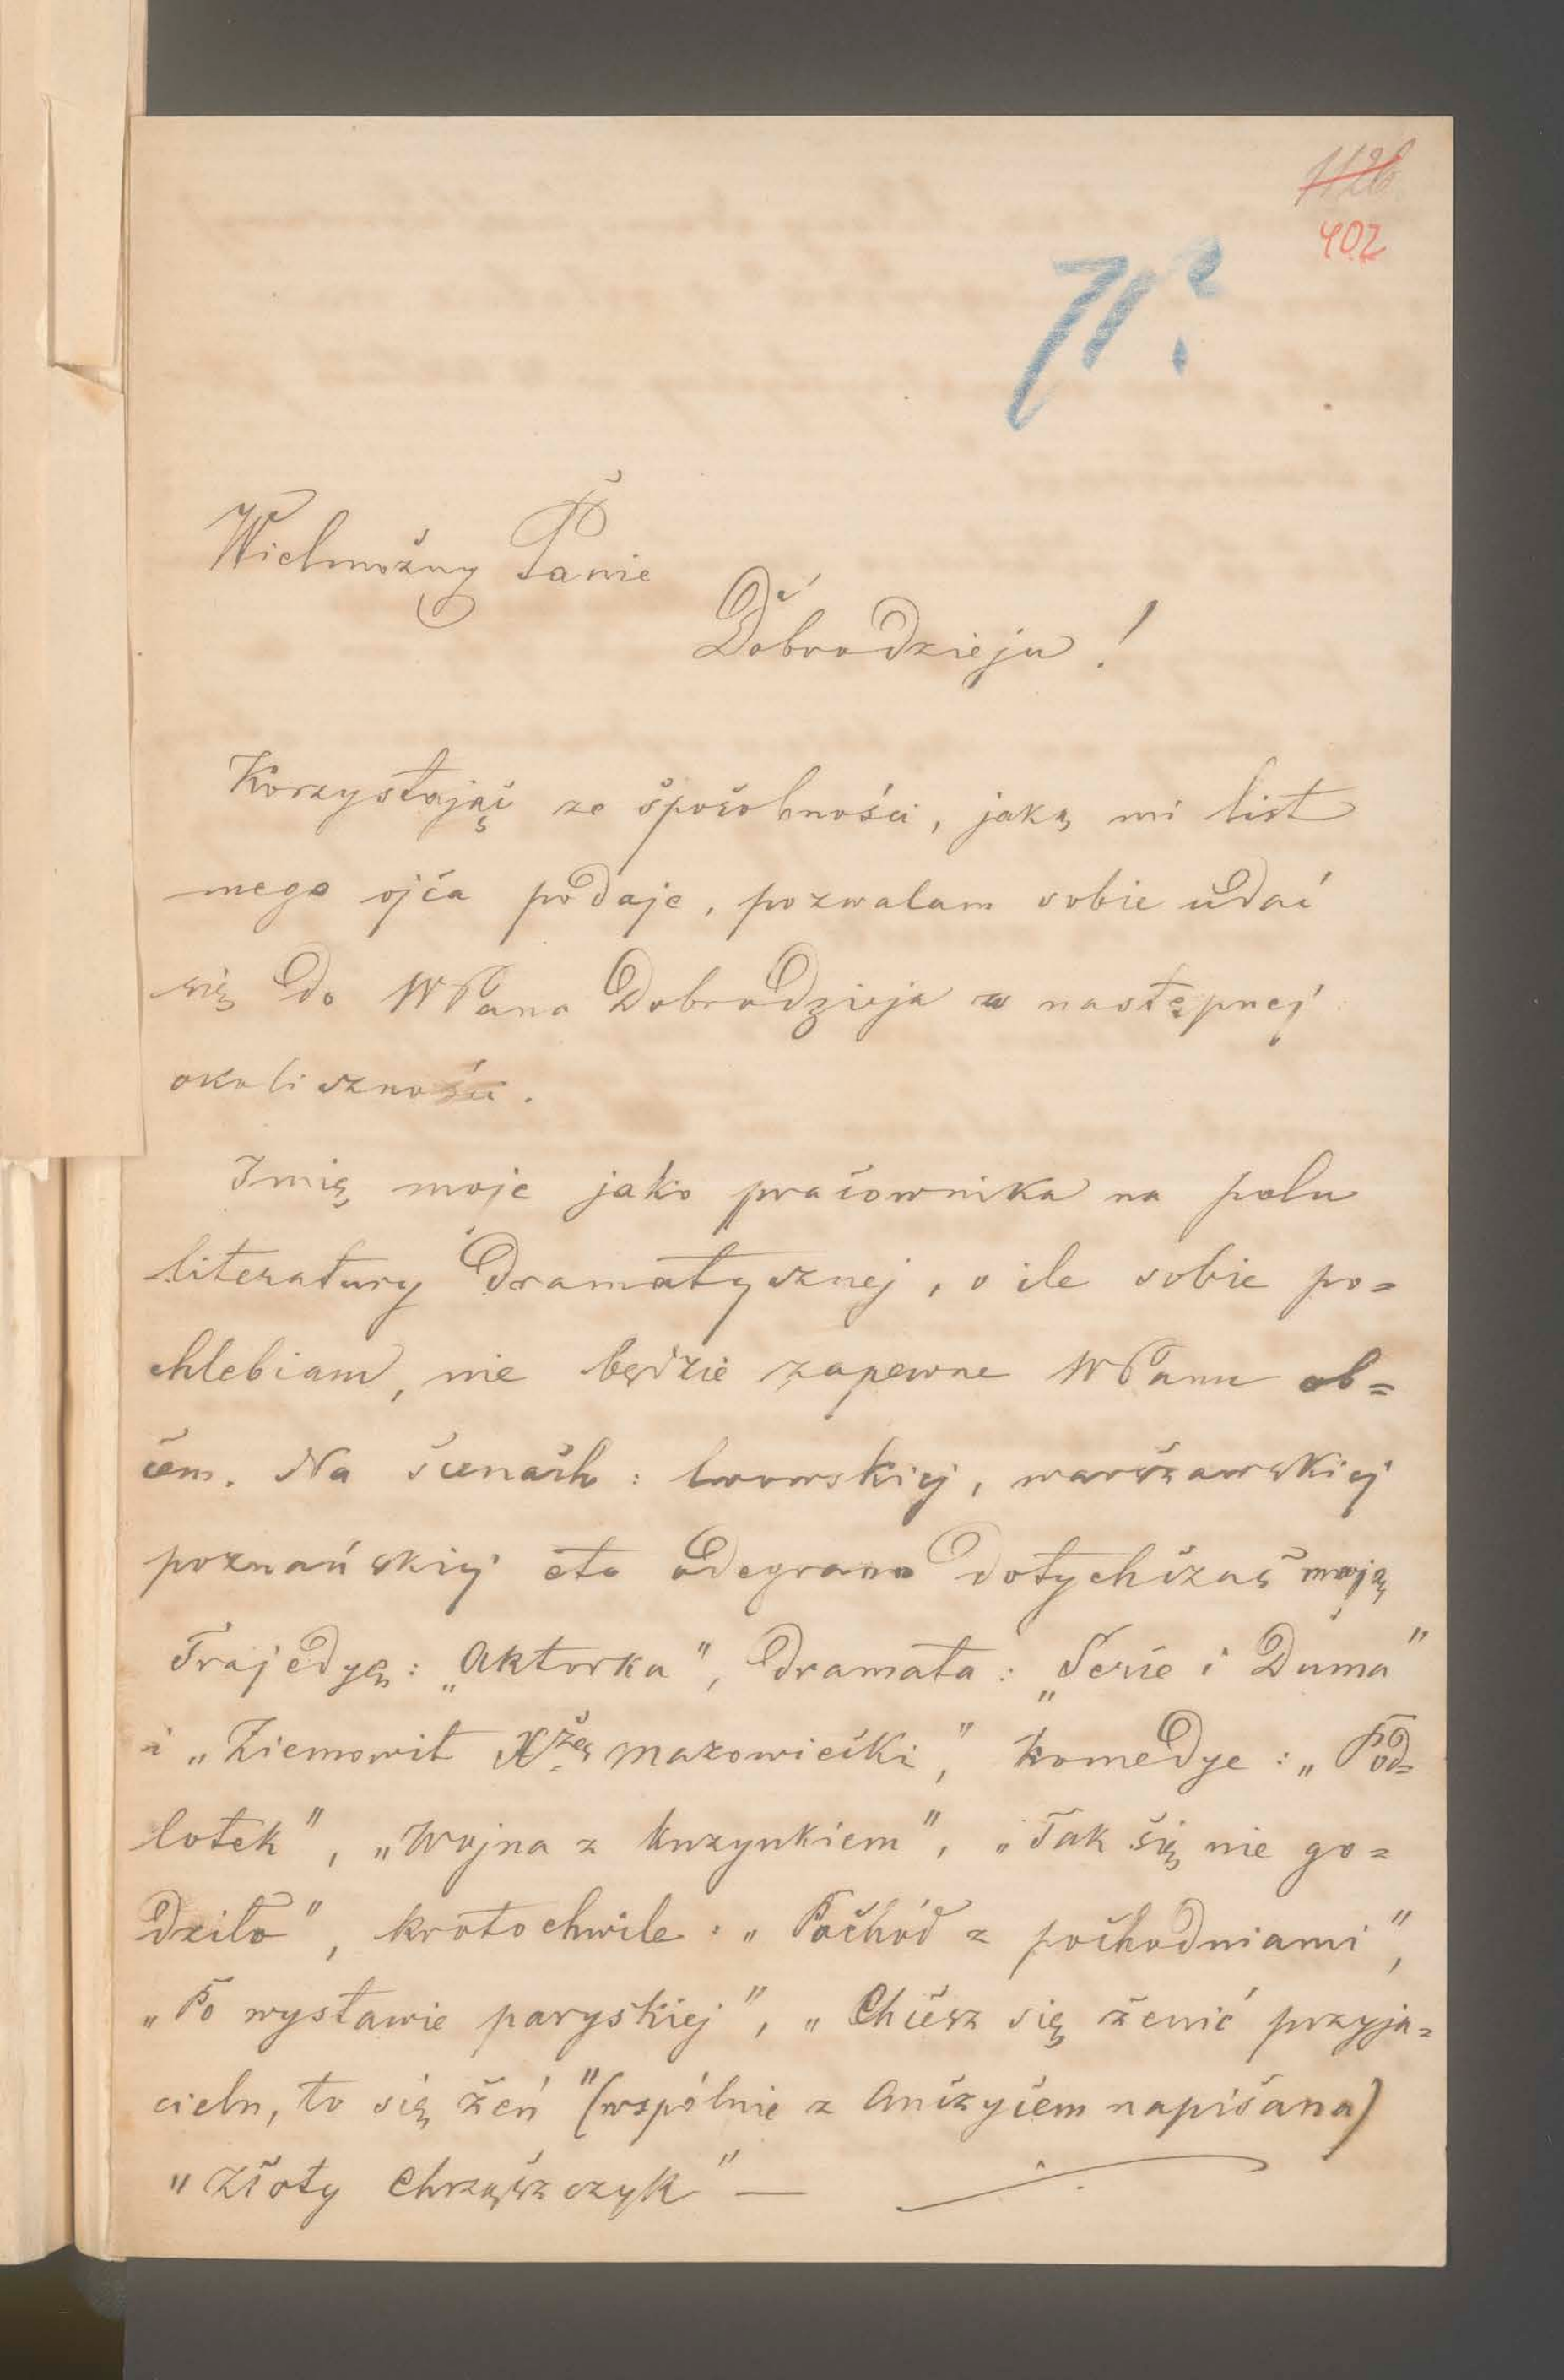 1126
402
Wielmożny Panie
Dobrodzieju!
Korzystając ze sposobności, jaką mi list
mego ojca podaje, pozwalam sobie udać
się do WPana Dobrodzieja w następnej
okoliczności.
Imię moje jako pracownika na polu
literatury dramatycznej, o ile sobie po=
chlebiam, nie będzie zapewne WPanu ob=
cem. Na scenach: lwowskiej, warszawskiej
poznańskiej etc odegrano dotychczas moją
Trajedyę: „Aktorka", dramata: „Serce i Duma"
i „Ziemowit Xżę mazowiecki", komedye: „Pod=
lotek", „Wojna z kuzynkiem", „Tak się nie go=
dziło", krotochwile: „Pochód z pochodniami",
„Po wystawie paryskiej", „Chcesz się żenić przyja=
cielu, to się żeń" (wspólnie z Anczycem napisana)
„Złoty Chrząszczyk" —